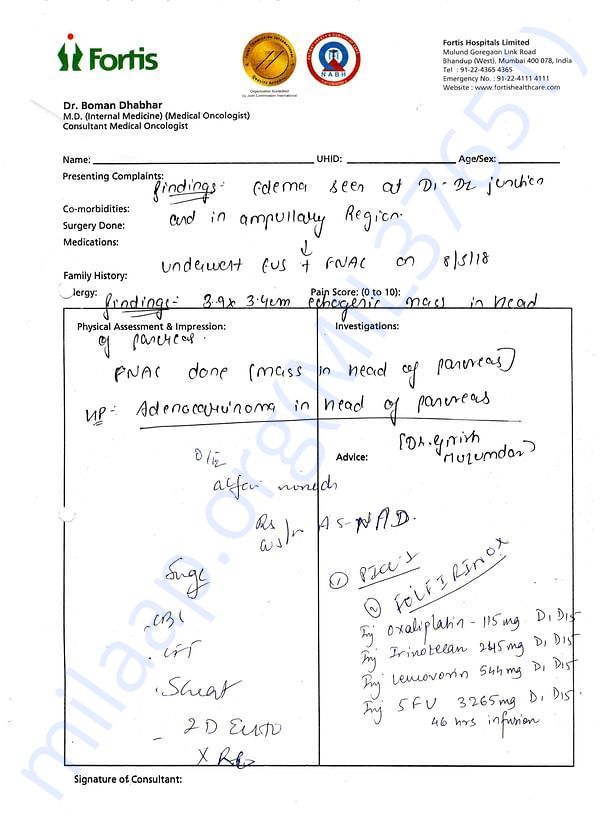 Fortis
Organization Accredited
by Joint Commission International
NABH
Fortis Hospitals Limited
Mulund Goregaon Link Road
Bhandup (West), Mumbai 400 078, India
Tel : 91-22-4365 4365
Emergency No. : 91-22-4111 4111
Website : www.fortishealthcare.com
Dr. Boman Dhabhar
M.D. (Internal Medicine) (Medical Oncologist)
Consultant Medical Oncologist
Name: UHID: Age/Sex:
Presenting Complaints:
findings:- Edema seen at D1-D2 junction
Co-morbidities:
and in ampullary Region.
Surgery Done:
Medications:
underwent EUS + FNAC on 8/5/18
Family History:
llergy: Pain Score: (0 to 10):
findings:- 3.9x 3.4cm echogenic mass in head
Physical Assessment & Impression: Investigations:
of pancreas.
FNAC done (mass in head of pancreas)
Adenocarcinoma in head of pancreas
O/E
Advice:
RS
AS-NAD.
① PICC
② FOLFIRINOX
CBC
Inj Oxaliplatin - 115mg D1 D15
Inj Irinotecan 245mg D1 D15
Inj Leucovorin 544mg D1 D15
Inj 5FU 3265mg D1 D15.
46 hrs infusion
2D Echo
X Ray
Signature of Consultant:
milaap.org(MIL3765